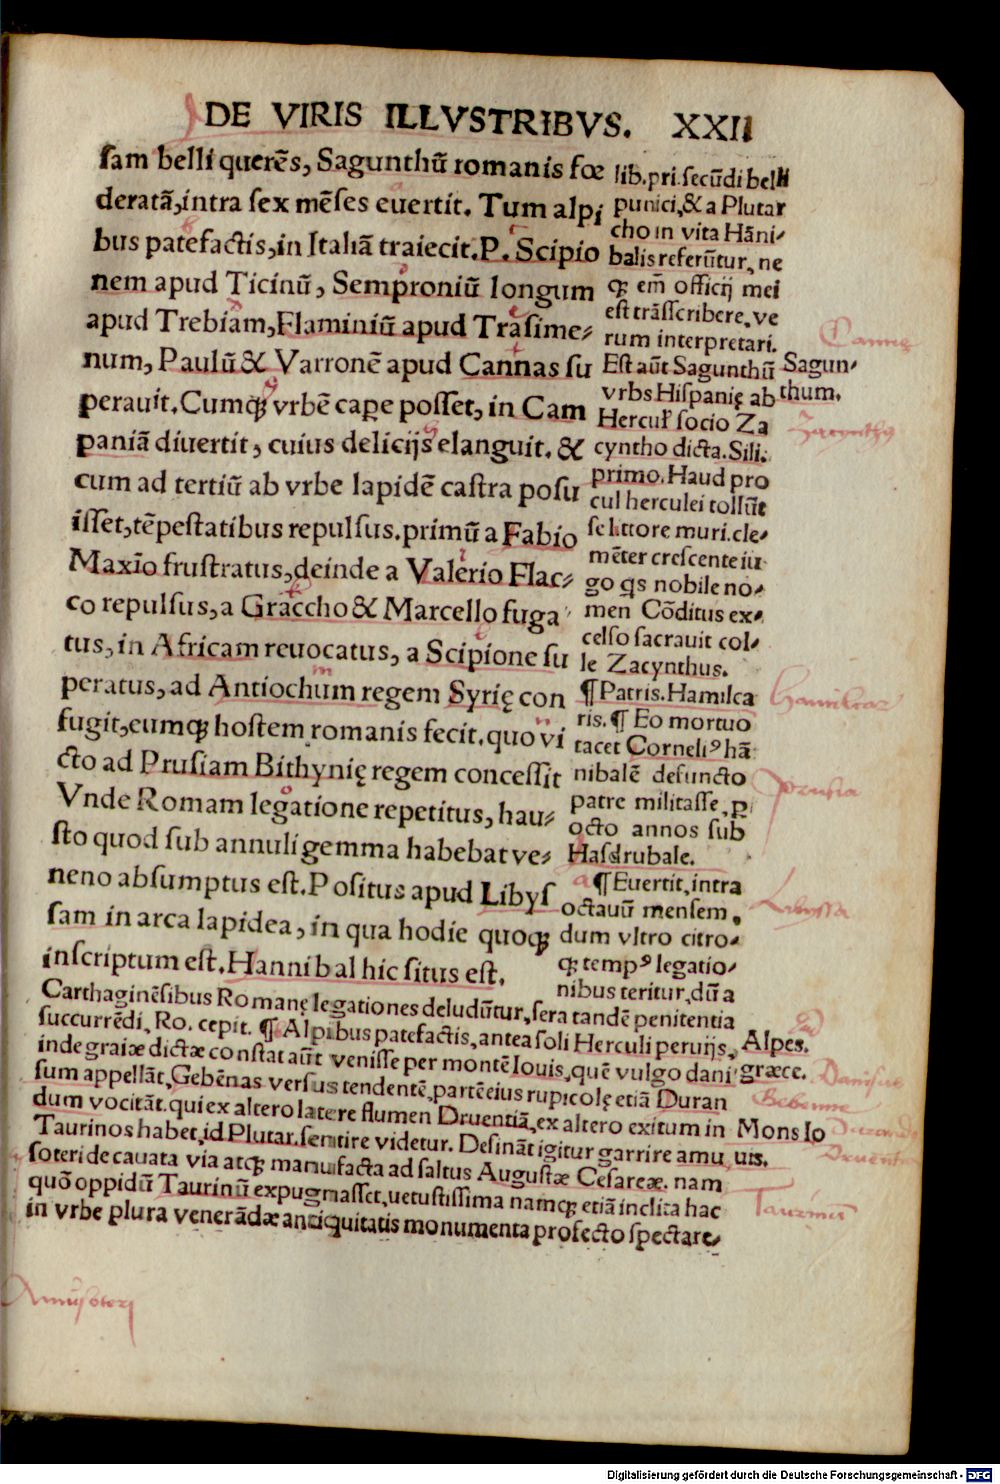 DE VIRIS ILLVSTRIBVS. XXII
sam belli querẽs, Sagunthũ romanis fœ
deratã, intra sex mẽses euertit. Tum alpi
bus patefactis, in Italiã traiecit. P. Scipio
nem apud Ticinũ, Semproniũ longum
apud Trebiam, Flaminiũ apud Trasime⸗
num, Paulũ & Varronẽ apud Cannas su
perauit. Cumqꝫ vrbẽ caꝑe posset, in Cam
paniã diuertit, cuius delicijs elanguit. &
cum ad tertiũ ab vrbe lapidẽ castra posu
isset, tẽpestatibus repulsus. primũ a Fabio
Maxĩo frustratus, deinde a Valerio Flac⸗
co repulsus, a Graccho & Marcello fuga
tus, in Africam reuocatus, a Scipione su
peratus, ad Antiochum regem Syrię con
fugit, eumqꝫ hostem romanis fecit. quo vi
cto ad Prusiam Bithynię regem concessit
Vnde Romam legatione repetitus, hau⸗
sto quod sub annuli gemma habebat ve⸗
neno absumptus est. Positus apud Libys
sam in arca lapidea, in qua hodie quoqꝫ
inscriptum est. Hannibal hic situs est.
lib. pri. secũdi belli
punici, & a Plutar
cho in vita Hãni⸗
balis referũtur, ne
qꝫ em̃ officij mei
est trãsscribere, ve
rum interpretari.
Est aũt Sagunthũ
vrbs Hispanię ab
Hercuł socio Za
cyntho dicta. Sili.
primo. Haud pro
cul herculei tollũt
se littore muri. cle⸗
mẽter crescente iu
go qs nobile no⸗
men Cõditus ex⸗
celso sacrauit col⸗
le Zacynthus.
¶ Patris. Hamilca
ris. ¶ Eo mortuo
tacet Corneliꝰ hã
nibalẽ defuncto
patre militasse, ꝑ
octo annos sub
Hasdrubale.
¶ Euertit, intra
octauũ mensem,
dum vltro citro⸗
qꝫ tempꝰ legatio⸗
nibus teritur, dũ a
Carthaginẽsibus Romanę legationes deludũtur, sera tandẽ penitentia
succurrẽdi, Ro. cepit. ¶ Alpibus patefactis, antea soli Herculi peruijs,
inde graiæ dictæ constat aũt venisse per montẽ Iouis, quẽ vulgo dani
sum appellãt, Gebẽnas versus tendentẽ, partẽ eius rupicolę etiã Duran
dum vocitãt. qui ex altero latere flumen Druentiã, ex altero exitum in
Taurinos habet, id Plutar. sentire videtur. Desinãt igitur garrire amu
soteri de cauata via atqꝫ manufacta ad saltus Augustæ Cesareæ. nam
quõ oppidũ Taurinũ expugnasset, uetustissima namqꝫ etiã inclita hac
in vrbe plura venerãdæ antiquitatis monumenta profecto spectare⸗
Sagun⸗
thum.
Alpes.
græce.
Mons Io
uis.
Cannę
Zacynthus
Hamilcar
Prusia
Libyssa
Danisus
Druentia
Taurinus
Amusoteri
Digitalisierung gefördert durch die Deutsche Forschungsgemeinschaft - DFG